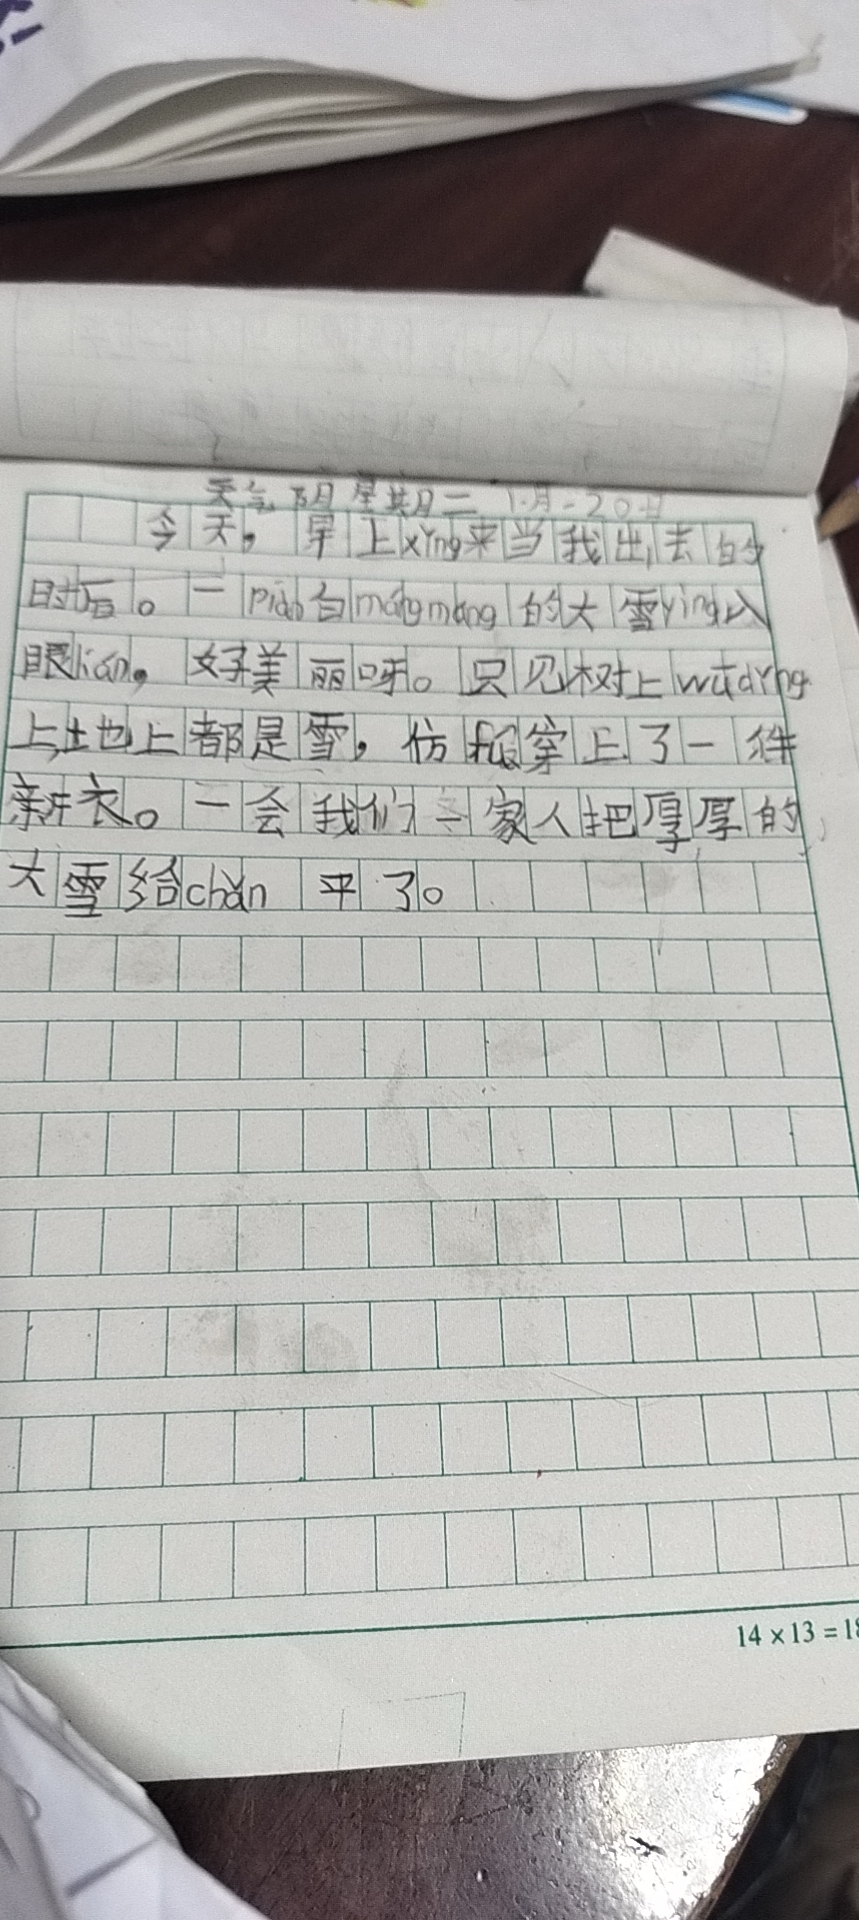 天气 阴 星期二 1月-20日
今天，早上xǐng来当我出去的
时后。一piàn白mángmáng的大雪yìng入
眼lián，好美丽呀。只见树上wūdǐng
上土地上都是雪，仿fú穿上了一件
新衣。一会我们一家人把厚厚的
大雪给chǎn平了。
14×13=18